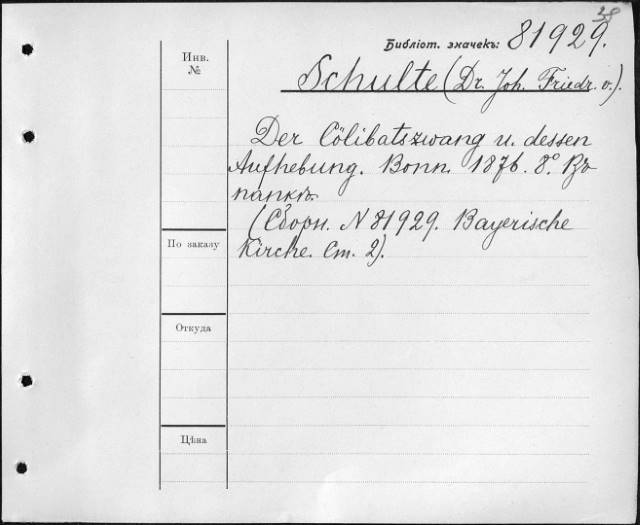 28
Библіот. значекъ: 81929.
Инв.
№
Schulte (Dr. Joh. Friedr. v.).
Der Cölibatszwang u. dessen
Aufhebung. Bonn. 1876. 8º. Въ
папкѣ.
(Сборн. N 81929. Bayerische
Kirche. Ст. 2).
По заказу
Откуда
Цѣна